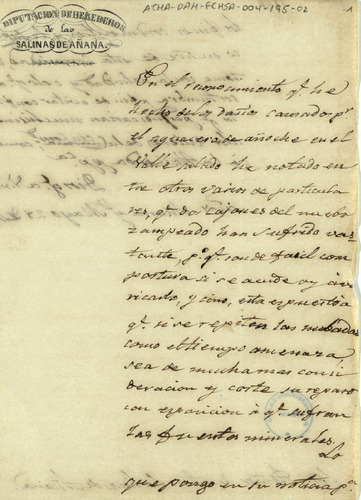 ATHA-DAH-FCHSA-004-195-02
1
DIPUTACION DE HEREDEROS
de las
SALINAS DE AÑANA.
En el reconocimiento q.e he
hecho de los daños causados p.r
el aguacero de añoche en el
Valle salado he notado en
tre otros varios de particula
res, q.e dos cajones del nuebo
zampeado han sufrido vas
tante, p.o q.e son de facil com
postura si se acude oy á
y como, esta expuesto á
q.e si se repiten las nubadas
como el tiempo amenaza,
sea de mucha mas consi
deracion y corte su reparo
con exposicion á q.e sufran
las fuentes minerales.
Lo
que pongo en su noticia p.a